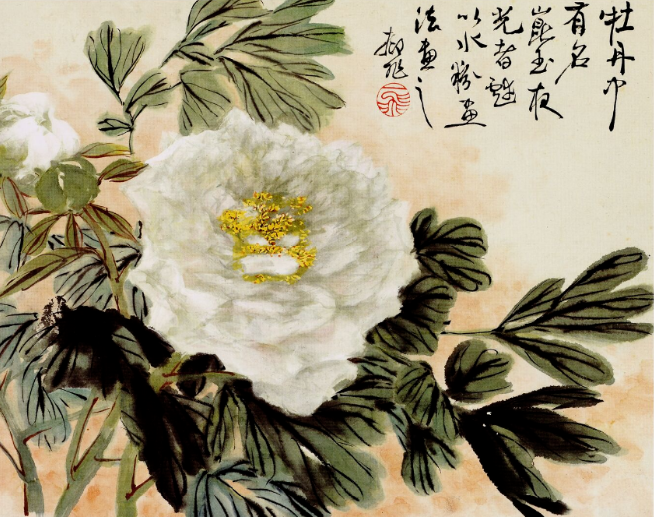 牡丹中
有名
崑玉夜
光者戲
以水粉畫
法畫之